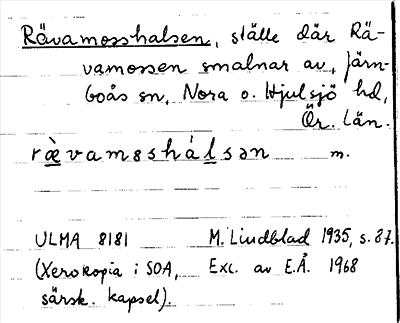 Rävamosshalsen, ställe där Rä-
vamossen smalnar av, Järn-
boås sn, Nora o. Hjulsjö hd,
Ör. län.
ræ̀vamosshálsən m.
ULMA 8181 M. Lindblad 1935, s. 37.
(Xerokopia i SOA, Exc. av E.Å. 1968
särsk. kapsel).